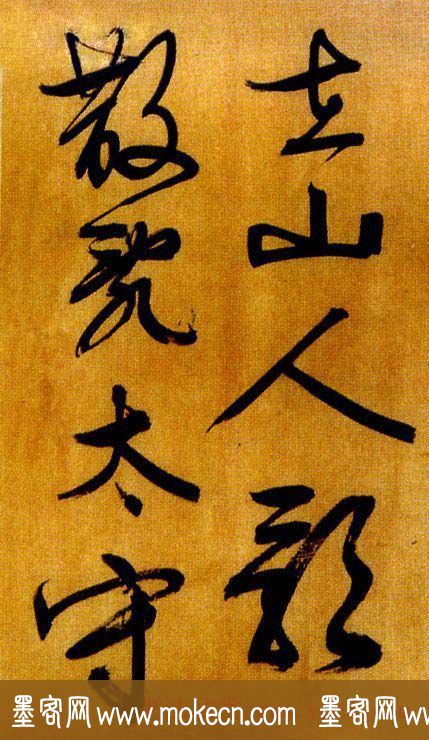 在山人影
散亂太守
墨客网 www.mokecn.com 墨客网 w